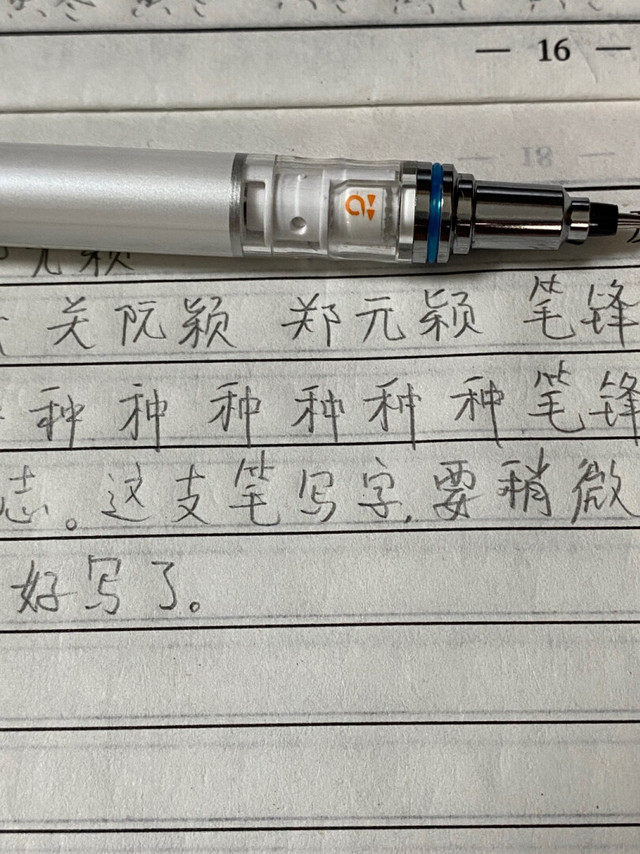 — 16 —
— 18 —
元颖
关阮颖 郑元颖 笔锋
种 种 种 种 种 种 笔锋
志。这支笔写字,要稍微
好写了。